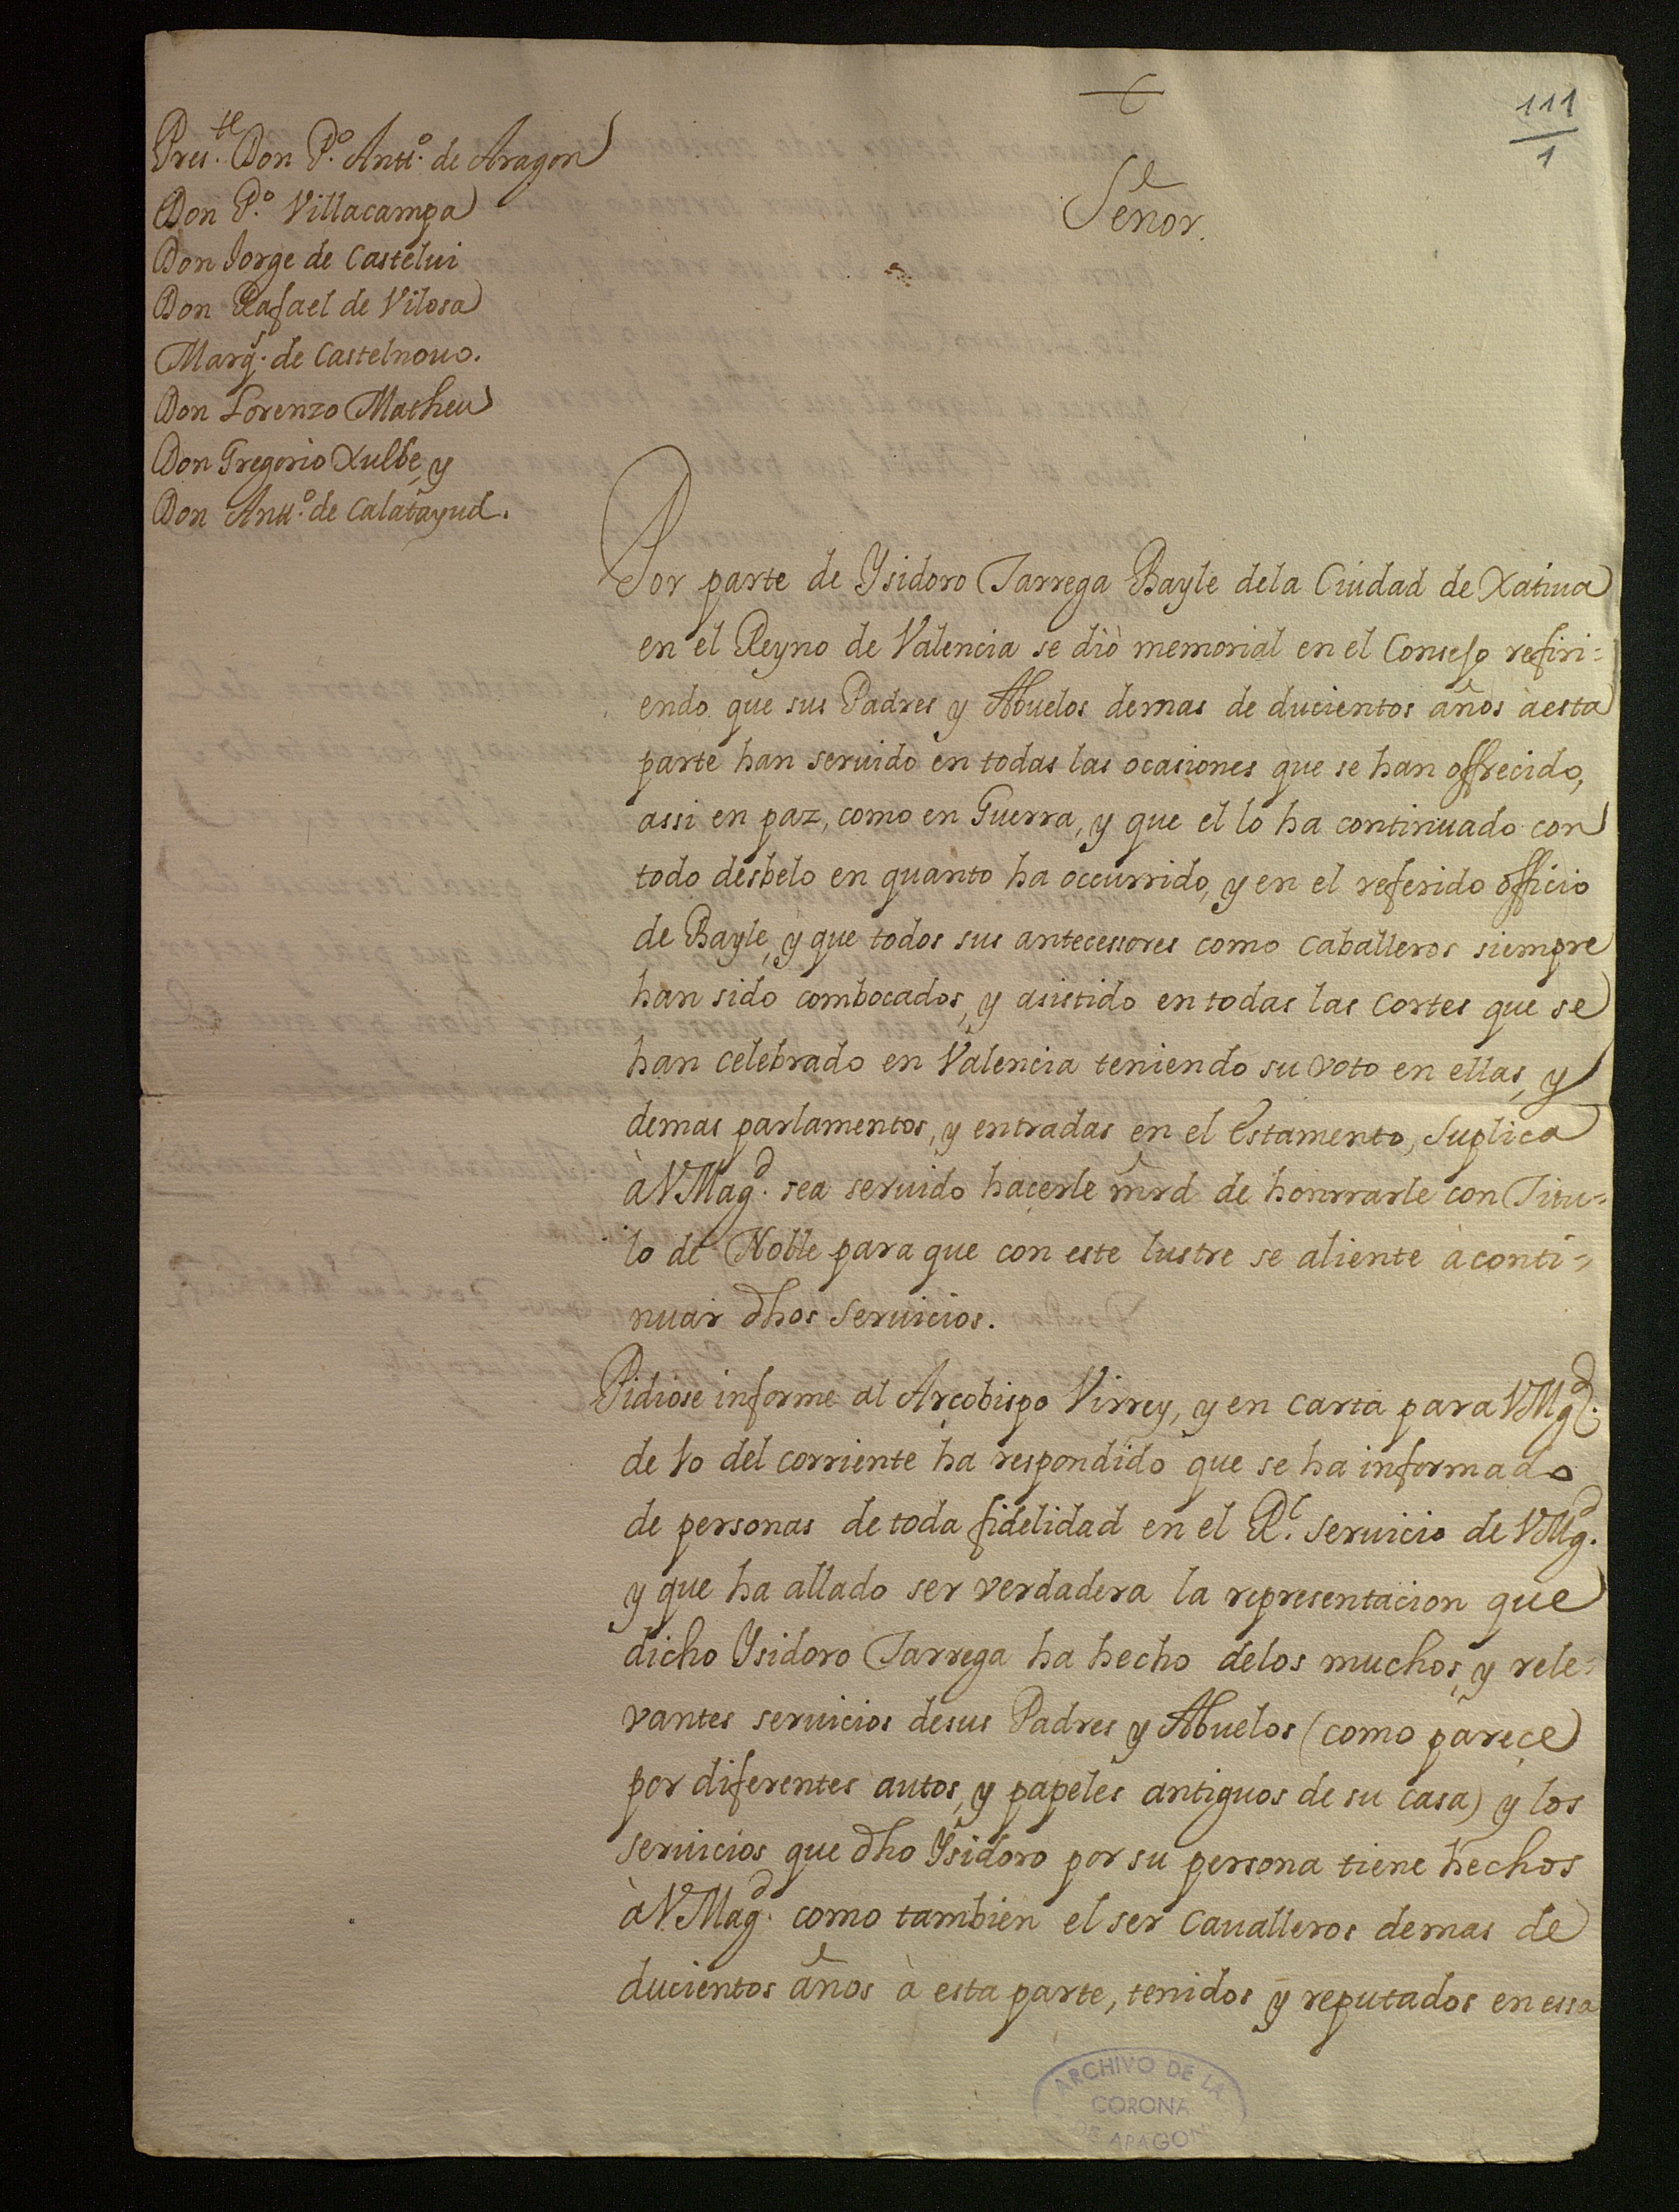 111
1
Pres.te Don P.o Antt.o de Aragon
Don P.o Villacampa
Don Jorge de Castelui
Don Rafael de Vilosa
Marq.s de Castelnouo.
Don Lorenzo Matheu
Don Gregorio Xulbe, y
Don Antt.o de Calatayud.
Señor.
Por parte de Ysidoro Tarrega Bayle dela Ciudad de Xatiua
en el Reyno de Valencia se diò memorial en el Consejo refiri=
endo que sus Padres y Abuelos demas de ducientos años àesta
parte han seruido en todas las ocasiones que se han offrecido,
assi en paz, como en Guerra, y que el lo ha continuado con
todo desbelo en quanto ha occurrido, y en el referido officio
de Bayle, y que todos sus antecessores como caballeros siempre
han sido combocados, y asistido en todas las Cortes que se
han celebrado en Valencia teniendo su voto en ellas, y
demas parlamentos, y entradas en el Estamento, Suplica
à VMag.d sea seruido hacerle mrd de honrrarle con Titu=
lo de Noble para que con este lustre se aliente àconti=
nuar dhos seruicios.
Pidiose informe al Arcobispo Virrey, y en carta para VMg.d
de 10 del corriente ha respondido que se ha informado
de personas de toda fidelidad en el R.l seruicio de VMg.d
y que ha allado ser verdadera la representacion que
dicho Ysidoro Tarrega ha hecho delos muchos, y rele=
vantes seruicios desus Padres y Abuelos (como parece
por diferentes autos, y papeles antiguos de su casa) y los
seruicios que dho Ysidoro por su persona tiene hechos
à VMag.d como tambien el ser Caualleros demas de
ducientos años à esta parte, tenidos y reputados en essa
ARCHIVO DE LA
CORONA
DE ARAGON